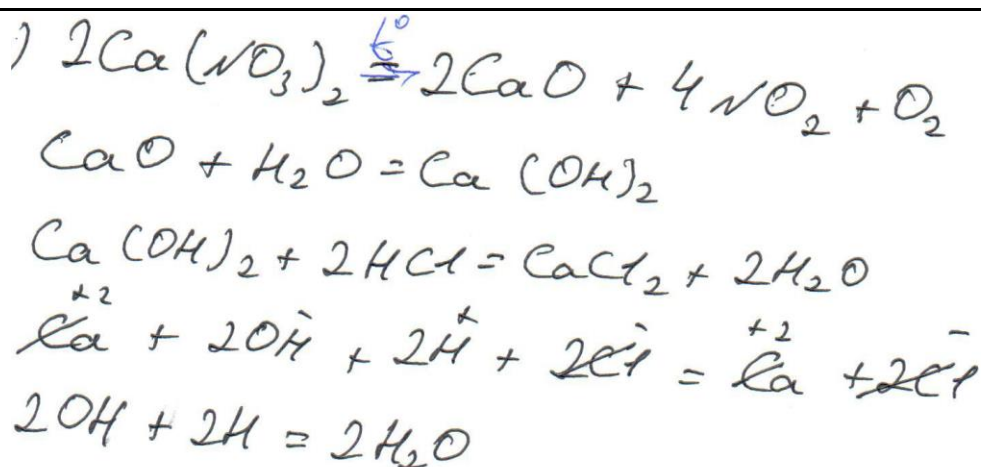 ) 2Ca(NO₃)₂ =t⁰ 2CaO + 4NO₂ + O₂
CaO + H₂O = Ca(OH)₂
Ca(OH)₂ + 2HCl = CaCl₂ + 2H₂O
Ca⁺² + 2OH⁻ + 2H⁺ + 2Cl⁻ = Ca⁺² + 2Cl⁻
2OH + 2H = 2H₂O